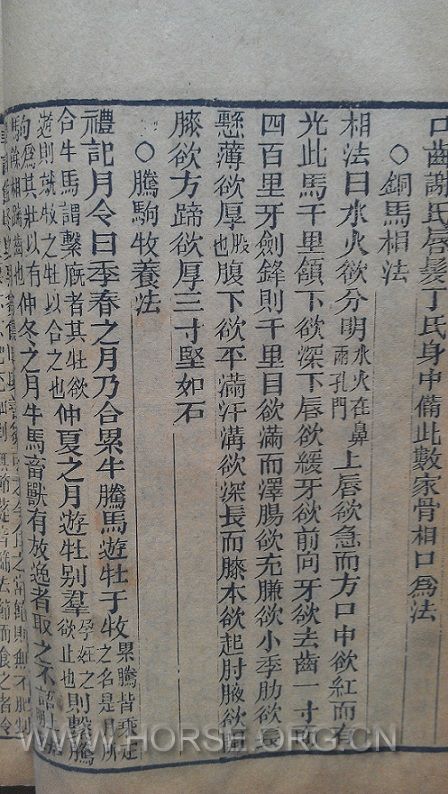 口齒謝氏唇鬐丁氏身中備此數家骨相口爲法
○銅馬相法
相法曰水火欲分明水火在鼻兩孔門上唇欲急而方口中欲紅而有
光此馬千里頷下欲深下唇欲緩牙欲前向牙欲去齒一寸
四百里牙劍鋒則千里目欲滿而澤腸欲充膁欲小季肋欲長
懸薄欲厚股也腹下欲平滿汗溝欲深長而膝本欲起肘腋欲開
膝欲方蹄欲厚三寸堅如石
○騰駒牧養法
禮記月令曰季春之月乃合累牛騰馬遊牝于牧累騰皆乘定之名是月所
合牛馬謂繫廄者其牡欲遊則就牧之牡以合之也仲夏之月遊牝别羣孕妊之欲止也則縶騰
駒爲其牡以有餘相蹄齧也仲冬之月牛馬畜獸有放逸者取之不詰
WWW.HORSE.ORG.CN